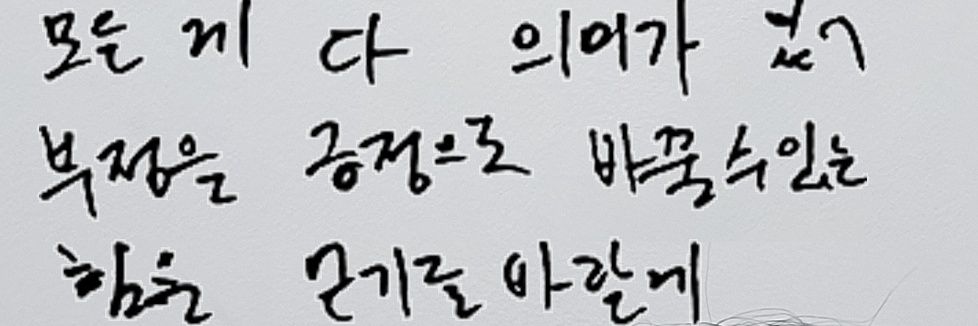 모든 게 다 의미가 있기
부정을 긍정으로 바꿀 수 있는
힘을 얻기를 바랄게